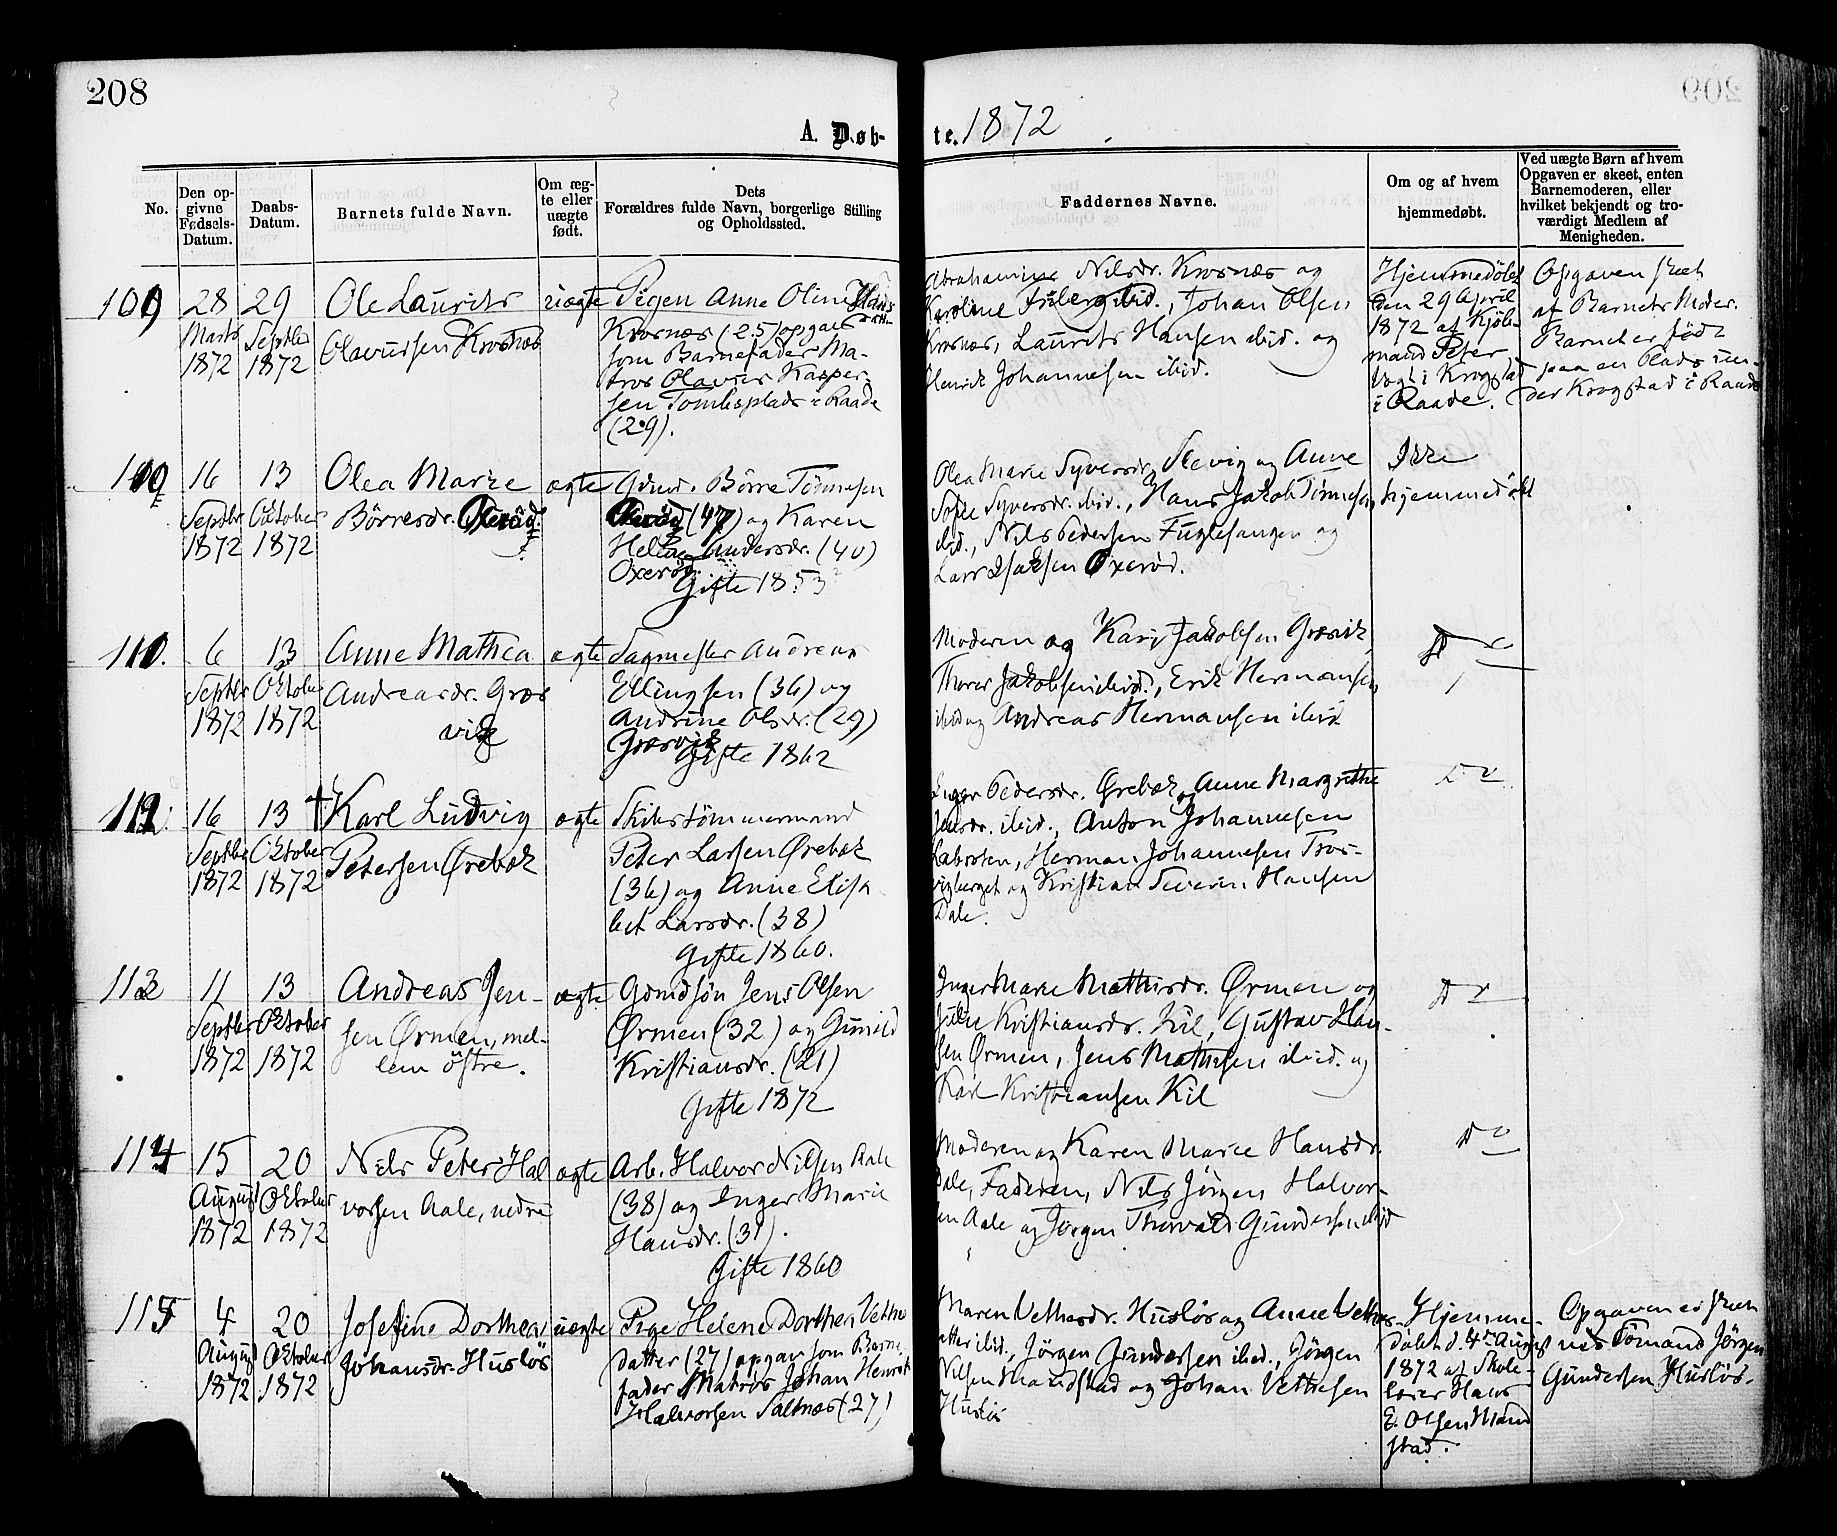 208
A. Døb-
te. 1872
No.
Den op-
givne
Fødsels-
Datum.
Daabs-
Datum.
Barnets fulde Navn.
Om æg-
te eller
uægte
født.
Dets
Forældres fulde Navn, borgerlige Stilling
og Opholdssted.
Faddernes Navne.
Om og af hvem
hjemmedøbt.
Ved uægte Børn af hvem
Opgaven er skeet, enten
Barnemoderen, eller
hvilket bekjendt og tro-
værdigt Medlem af
Menigheden.
28
Marts
1872
29
Septbr
1872
Ole Laurits
Olavussen Krosnæs
uægte
Pigen Anne Oline Hans
Krosnæs (25) opgav
som Barnefader Ma-
tros Olavus Kasper-
sen Tomlesplads i Raade
(29).
Abrahamine Nilsdr. Krosnæs og
Karoline ibid., Johan Olsen
Krosnæs, Laurits Hansen ibid. og
Henrik Johannesen ibid.
Hjemmedøbt
den 29 April
1872 af Kjøb-
mand Peter
Vogt i Krogstad
i Raade.
Opgaven skeet
af Barnets Moder.
Barnet er født
paa en Plads un-
der Krogstad i Raade
16
Septbr
1872
13
Oktober
1872
Olea Marie
Børresdr. Oxerød.
ægte
Gdmd. Børre Tønnesen
(47) og Karen
Helene Andersdr. (40)
Oxerød.
Gifte 1853
Olea Marie Syversdr. Slevig og Anne
Sofie Syversdr. ibid., Hans Jakob Tønnesen
ibid., Nils Pedersen Fuglesangen og
Lars Isaksen Oxerød.
Ikke
hjemmedøbt
110.
6
Septbr
1872
13
Oktober
1872
Anne Mathea
Andreasdr. Græs
vig
ægte
Sagmester Andreas
Ellingsen (36) og
Andrine Olsdr. (29)
Græsvik
Gifte 1862
Moderen og Kari Jakobsen Græsvik,
Thorer Jakobsen ibid., Erik Hermansen
ibid og Andreas Hermansen ibid
do
112.
16
Septbr
1872
13
Oktober
1872
† Karl Ludvig
Petersen Ørebæk
ægte
Skibstømmermand
Peter Larsen Ørebæk
(36) og Anne Elisa
bet Larsdr. (38)
Gifte 1860.
Inger Pedersdr. Ørebæk, Anne Margrethe
Jensdr. ibid., Anton Johannesen
Labroten, Herman Johannesen Tros-
vigberget og Kristian Severin Hansen
Dale.
do
113
11
Septbr
1872
13
Oktober
1872
Andreas Jen-
sen Ørmen, mel-
lem østre.
ægte
Gdmdsøn Jens Olsen
Ørmen (32) og Gunild
Kristiansdr. (21)
Gifte 1872
Inger Marie Mathisdr. Ørmen og
Julie Kristiansdr. Kil, Gustav Han-
sen Ørmen, Jens Mathisen ibid. og
Karl Kristiansen Kil
do
114
15
August
1872
20
Oktober
1872
Nils Peter Hal
vorsen Aale, nedre
ægte
Arb. Halvor Nilsen Aale
(38) og Inger Marie
Hansdr. (31).
Gifte 1860
Moderen og Karen Marie Hansdr.
Dale, Faderen, Nils Jørgen Halvor-
sen Aale og Jørgen Thorvald Gundersen ibid
do
115
4
August
1872
20
Oktober
1872
Josefine Dorthea
Johansdr. Husløs
uægte
Pige Helene Dorthea Vethe
datter (27) opgav som Barne-
fader Matros Johan Henrik
Halvorsen Saltnæs (27)
Maren Vethesdr. Husløs og Anne Vethes-
datter ibid., Jørgen Gundersen ibid., Jørgen
Nilsen Mandstad og Johan Vethesen
Husløs
Hjemme-
døbt d. 4de August
1872 af Skole-
lærer Hans
E. Olsen Mand
stad.
Opgaven er skeet
ved Tømand Jørgen
Gundersen Husløs.